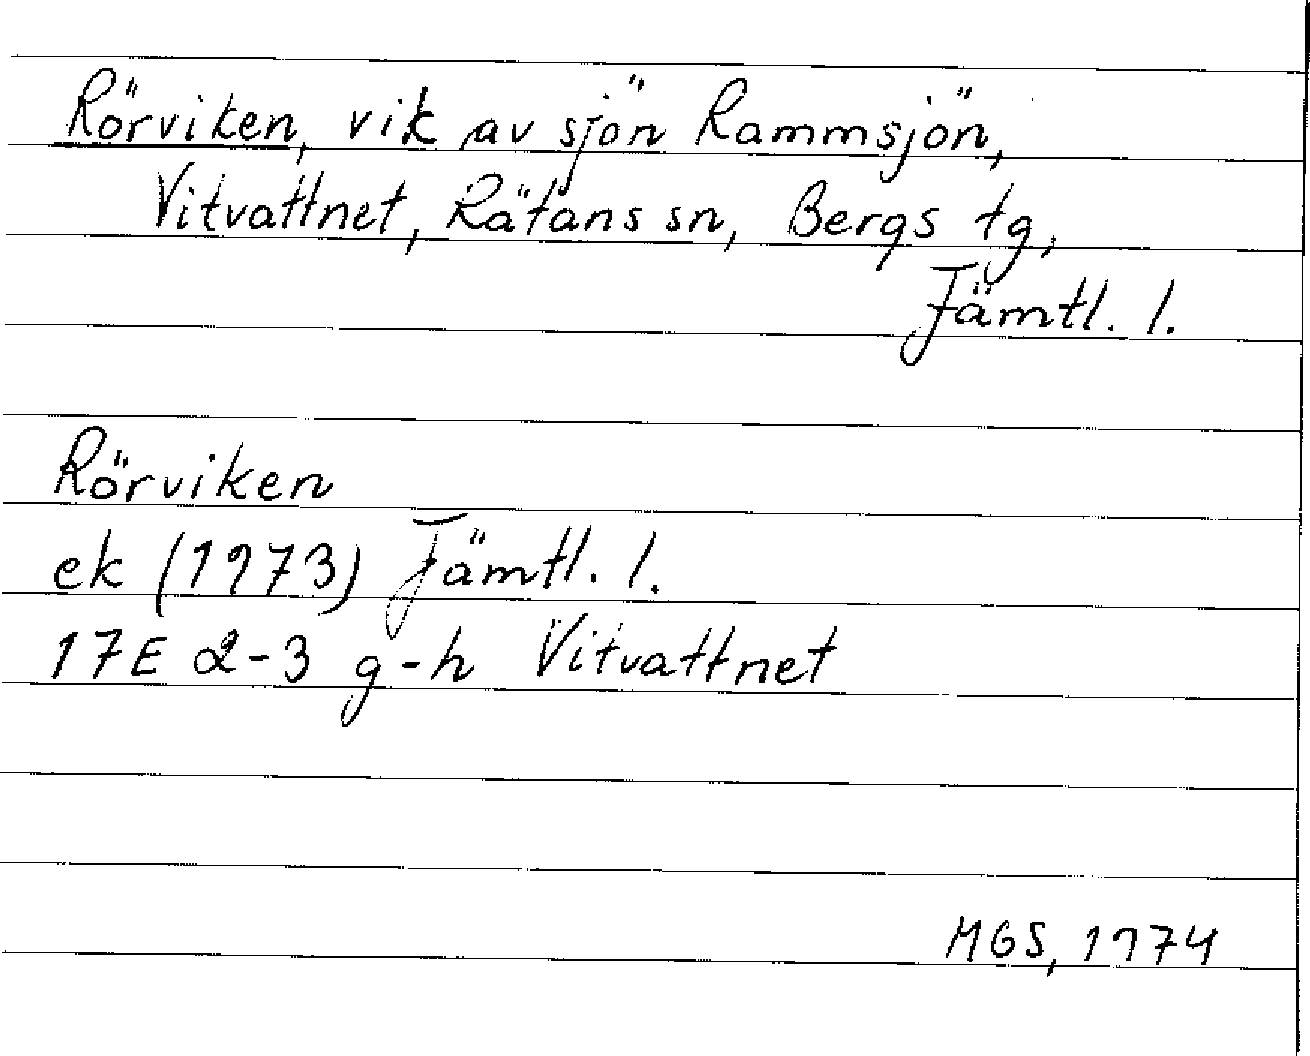 Rörviken, vik av sjön Rammsjön,
Vitvattnet, Rätans sn, Bergs tg,
Jämtl. l.
Rörviken
ek (1973) Jämtl. l.
17E 2-3 g-h Vitvattnet
MGS, 1974